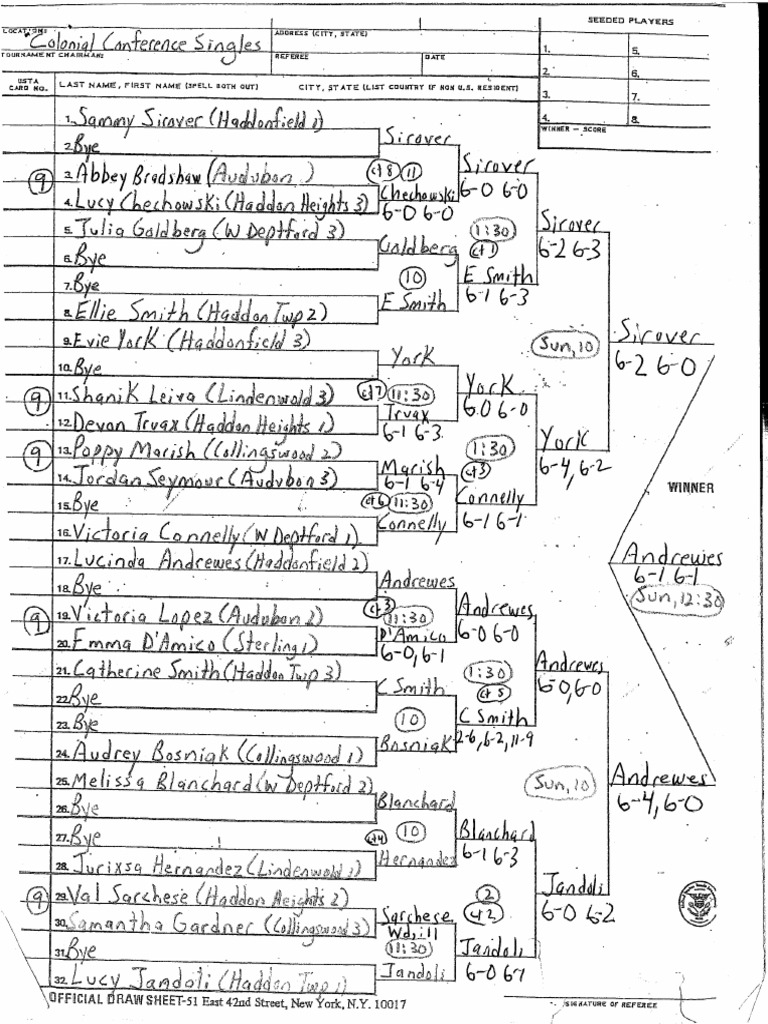 LOCATION: Colonial Conference Singles
ADDRESS (CITY, STATE)
SEEDED PLAYERS
TOURNAMENT CHAIRMAN:
REFEREE
DATE
1. 5.
2. 6.
3. 7.
4. 8.
USTA CARD NO.
LAST NAME, FIRST NAME (SPELL BOTH OUT)
CITY, STATE (LIST COUNTRY IF NON U.S. RESIDENT)
WINNER - SCORE
1. Sammy Sirover (Haddonfield 1)
2. Bye
9 3. Abbey Bradshaw (Audubon )
4. Lucy Chechowski (Haddon Heights 3)
5. Julia Goldberg (W Deptford 3)
6. Bye
7. Bye
8. Ellie Smith (Haddon Twp 2)
9. Evie York (Haddonfield 3)
10. Bye
9 11. Shanik Leiva (Lindenwold 3)
12. Devon Truax (Haddon Heights 1)
9 13. Poppy Marish (Collingswood 2)
14. Jordan Seymour (Audubon 3)
15. Bye
16. Victoria Connelly (W Deptford 1)
17. Lucinda Andrewes (Haddonfield 2)
18. Bye
9 19. Victoria Lopez (Audubon 2)
20. Emma D'Amico (Sterling 1)
21. Catherine Smith (Haddon Twp 3)
22. Bye
23. Bye
24. Audrey Bosniak (Collingswood 1)
25. Melissa Blanchard (W Deptford 2)
26. Bye
27. Bye
28. Jurixsa Hernandez (Lindenwold 1)
9 29. Val Sarchese (Haddon Heights 2)
30. Samantha Gardner (Collingswood 3)
31. Bye
32. Lucy Jandoli (Haddon Twp 1)
Sirover
ct 8 11
Chechowski
6-0 6-0
Goldberg
10
E Smith
York
ct 7 11:30
Truax
6-1 6-3
Marish
6-1 6-4
ct 6 11:30
Connelly
Andrewes
ct 3 11:30
D'Amico
6-0, 6-1
C Smith
10
Bosniak
Blanchard
ct 4 10
Hernandez
Sarchese
Wd, ill
11:30
Jandoli
Sirover
6-0 6-0
1:30
ct 1
E Smith
6-1 6-3
York
6-0 6-0
1:30
ct 3
Connelly
6-1 6-1
Andrewes
6-0 6-0
1:30
ct 5
C Smith
2-6, 6-2, 11-9
Blanchard
6-1 6-3
2
ct 2
Jandoli
6-0 6-1
Sirover
6-2 6-3
Sun, 10
York
6-4, 6-2
Andrewes
6-0, 6-0
Sun, 10
Jandoli
6-0 6-2
Sirover
6-2 6-0
Andrewes
6-4, 6-0
WINNER
Andrewes
6-1 6-1
Sun, 12:30
OFFICIAL DRAW SHEET-51 East 42nd Street, New York, N.Y. 10017
SIGNATURE OF REFEREE